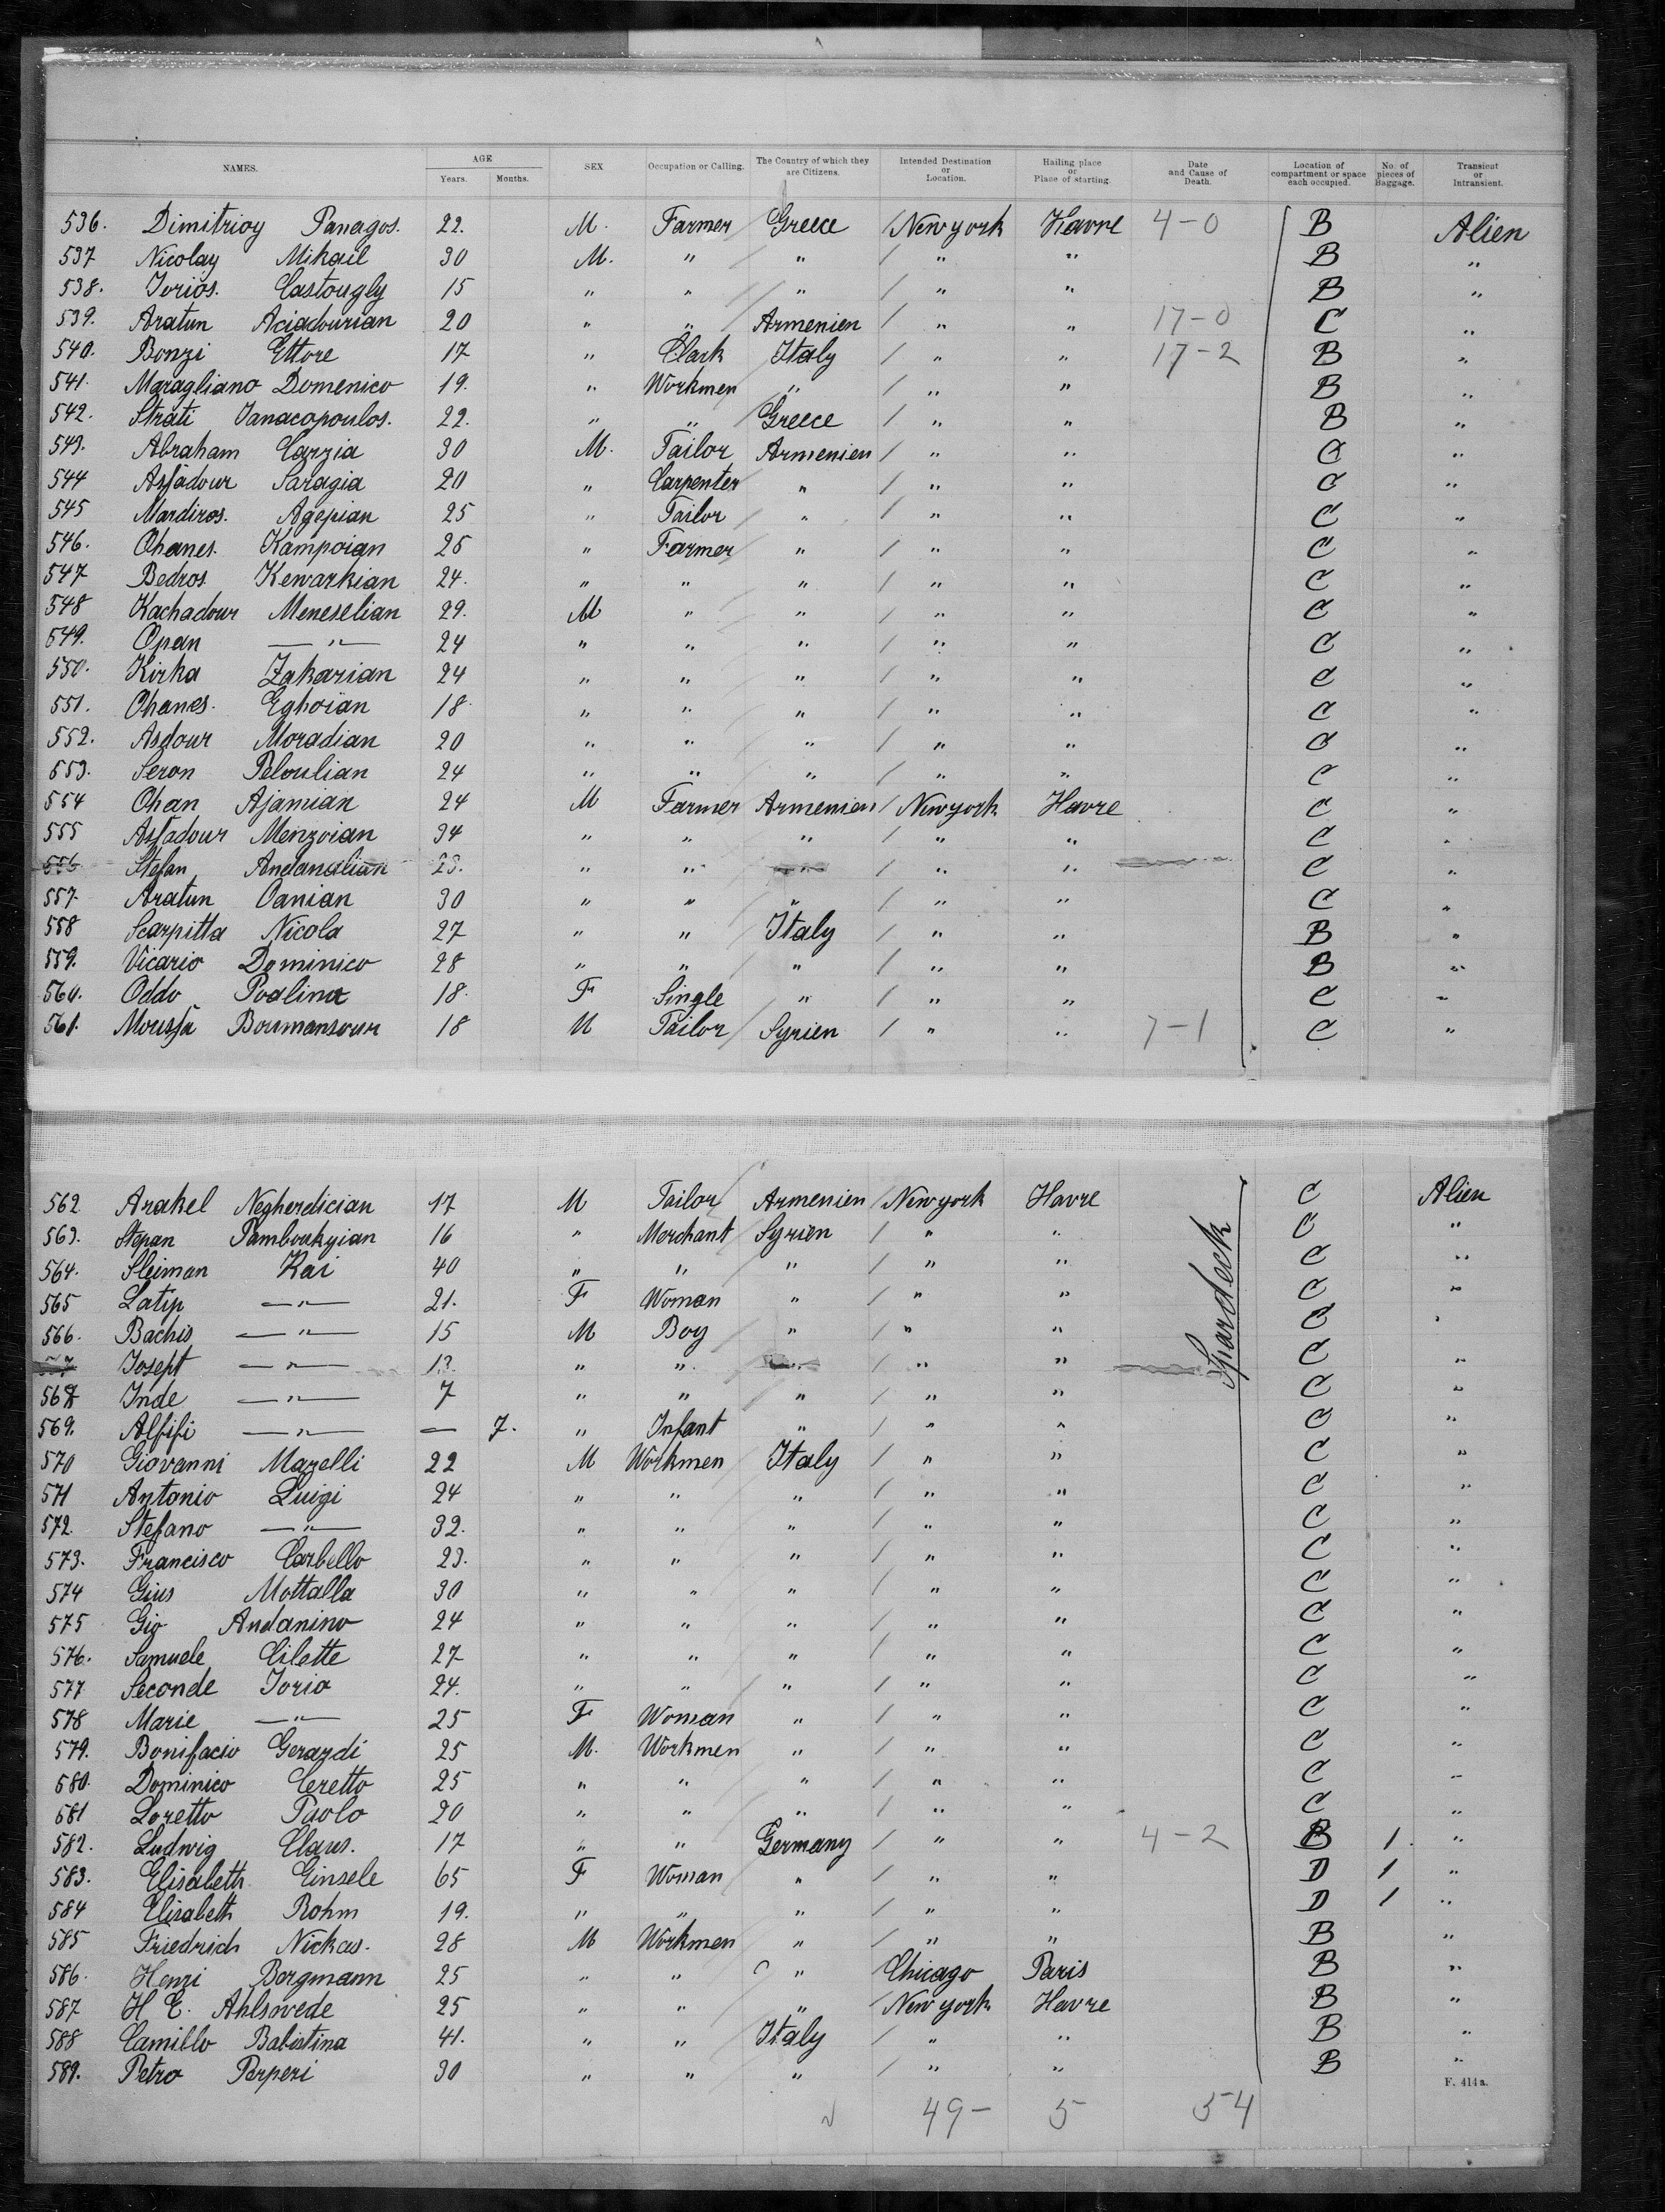 NAMES. AGE Years. Months. SEX Occupation or Calling. The Country of which they are Citizens. Intended Destination or Location. Hailing place or Place of starting. Date and Cause of Death. Location of compartment or space each occupied. No. of pieces of Baggage. Transient or Intransient.
536. Dimitrioy Panagos. 22. M. Farmer Greece / New york Havre 4-0 B Alien
537 Nicolay Mikail 30 M. " " / " " B "
538. Jorios. Castougly 15 " " " / " " B "
539. Aratun Aciadourian 20 " " Armenien / " " 17-0 C "
540. Bonzi Ettore 17 " Clark Italy / " " 17-2 B "
541. Maragliano Domenico 19. " Workmen " / " " B "
542. Strati Janacopoulos. 22. " " Greece / " " B "
543. Abraham Carzia 30 M. Tailor Armenien / " " C "
544 Assadour Saragia 20 " Carpenter " / " " C "
545 Mardiros. Agepian 25 " Tailor " / " " C "
546. Ohanes. Kampoian 25 " Farmer " / " " C "
547 Bedros Kewarkian 24. " " " / " " C "
548 Kachadour Meneselian 29. M " " / " " C "
549. Opan — " — 24 " " " / " " C "
550. Kirka Zakarian 24 " " " / " " C "
551. Ohanes. Eghoïan 18 " " " / " " C "
552. Asdour Moradian 20 " " " / " " C "
553. Seron Peloulian 24 " " " / " " C "
554 Ohan Ajamian 24 M Farmer Armenien / New york Havre C "
555 Assadour Menzoian 34 " " " / " " C "
556 Stefan Andanalian 23. " " " / " " C "
557. Aratun Oanian 30 " " " / " " C "
558 Scarpitta Nicola 27 " " Italy / " " B "
559. Vicario Dominico 28 " " " / " " B "
560. Oddo Poalina 18. F Single " / " " C "
561. Moussa Boumansour 18 M Tailor Syrien / " " 7-1 C "
562 Arakel Negherdician 17 M Tailor Armenien / New york Havre C Alien
563. Stepan Pamboukyian 16 " Merchant Syrien / " " C "
564. Sleiman Kai 40 " " " / " " C "
Spardeck
565 Latip — " — 21. F Woman " / " " C "
566. Bachis — " — 15 M Boy " / " " C "
Josept — " — 13. " " " / " " C "
568 Inde — " — 7 " " " / " " C "
569. Alfifi — " — — 7. " Infant " / " " C "
570 Giovanni Mazelli 22 M Workmen Italy / " " C "
571 Antonio Luigi 24 " " " / " " C "
572. Stefano — " — 32. " " " / " " C "
573. Francisco Carbello 23. " " " / " " C "
574 Gius Mottalla 30 " " " / " " C "
575 Gio Andanino 24 " " " / " " C "
576. Samuele Cilette 27 " " " / " " C "
577 Seconde Iorio 24. " " " / " " C "
578 Marie — " — 25 F Woman " / " " C "
579. Bonifacio Gerardi 25 M. Workmen " / " " C "
580. Dominico Ceretto 25 " " " / " " C "
581 Loretto Paolo 20 " " " / " " C "
582. Ludwig Claus. 17 " " Germany / " " 4-2 B 1. "
583. Elisabeth Ginsele 65 F Woman " / " " D 1 "
584 Elisabeth Rohm 19. " " " / " " D 1 "
585 Friedrich Nickas. 28 M Workmen " / " " B "
586. Henzi Borgmann 25 " " " Chicago Paris B "
587 H E. Ahlswede 25 " " " / New york Havre B "
588 Camillo Babistina 41. " " Italy / " " B "
589. Petro Perperi 30 " " " / " " B "
F. 414 a.
49- 5 54